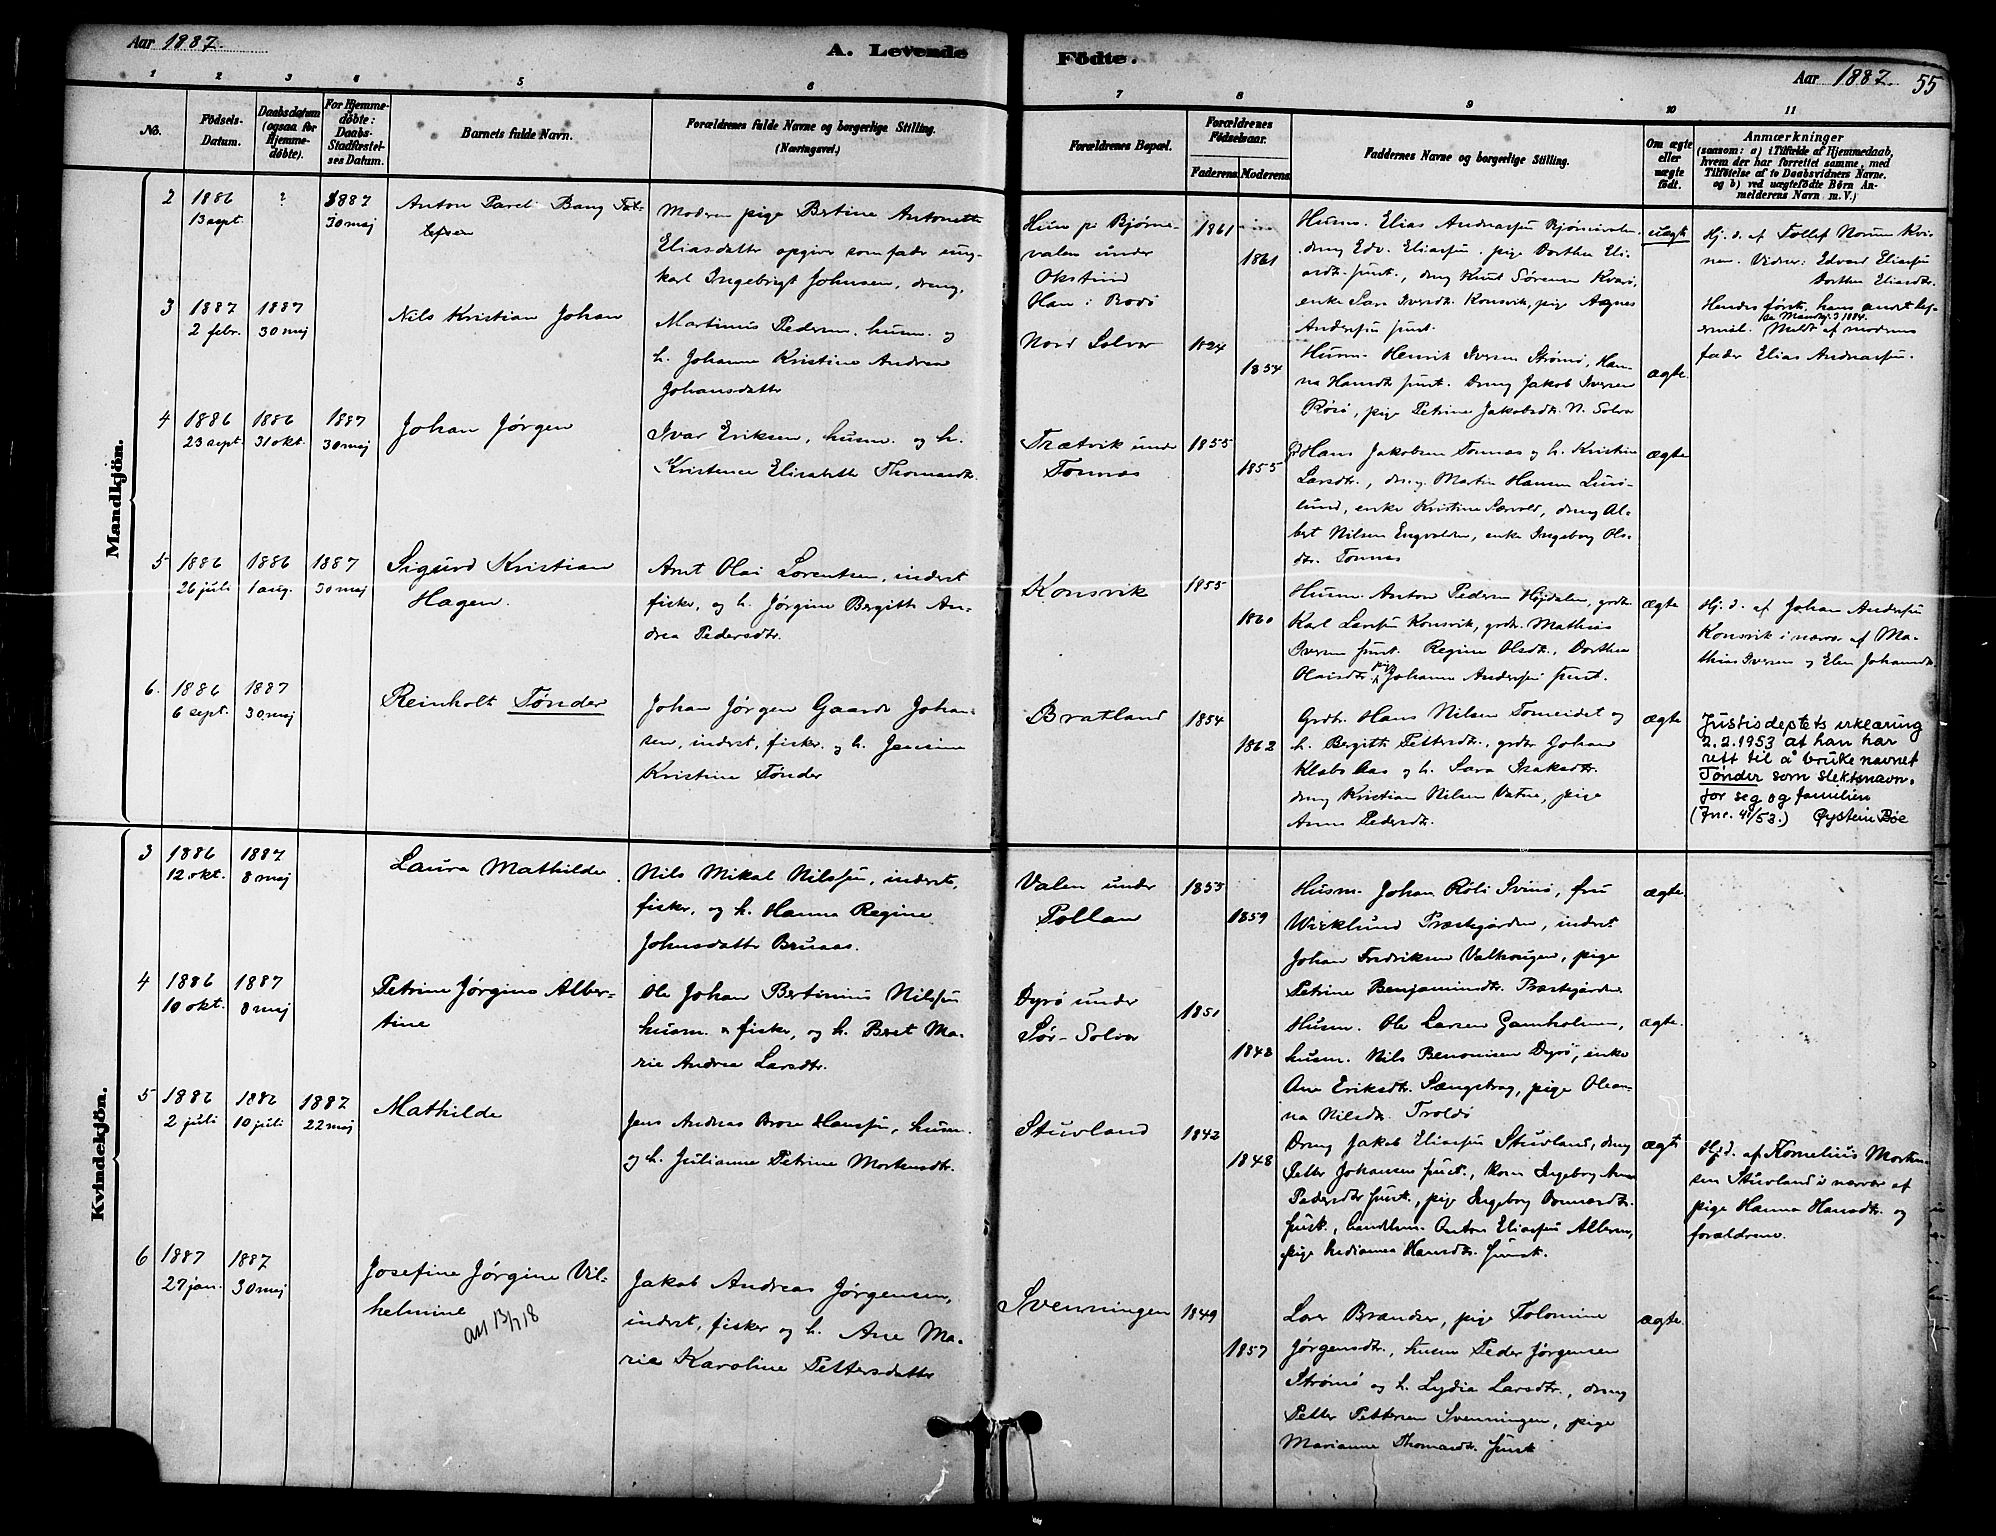 Aar 1887.
A. Levende
Födte.
Aar 1887. 55
1 2 3 4 5 6 7 8 9 10 11
No.
Födsels-
Datum.
Daabsdatum
(ogsaa for
Hjemme-
døbte).
For Hjemme-
døbte:
Daabs-
Stadfæstel-
ses Datum.
Barnets fulde Navn.
Forældrenes fulde Navne og borgerlige Stilling.
(Næringsvei.)
Forældrenes Bopæl.
Forældrenes
Födselsaar.
Faderens. Moderens.
Faddernes Navne og borgerlige Stilling.
Om ægte
eller
uægte
født.
Anmærkninger
(saasom: a) i Tilfælde af Hjemmedaab,
hvem der har forrettet samme, med
Tilføielse af to Daabsvidners Navne.
og b) ved uægtefödte Börn An-
melderens Navn m. V.)
Mandkjön.
2 1886
13 sept.
?
1887
30 maj
Anton Bang
Moderen pige Bertine Antonette
Eliasdatter opgiver som fader ung-
karl Ingebrigt Johnsen, dreng.
Hun på Bjørne-
valen under
Okstind
Han i Bodö
1861
1861
Husm. Elias Andreassen
dreng Edv. Eliassen, pige Dorthea Eli-
asdtr. smst., dreng Knut Sörensen
enke Sara Iversdtr. Konsvik, pige Agnes
Andersen smst.
uægte
Hj. d. af Tollef
Vidner: Edvard Eliassen
Dorthea Eliasdtr.
Hendes første, hans andet lej-
ermål. Meldt af moderens
fader Elias Andreassen.
3 1887
2 febr.
1887
30 maj
Nils Kristian Johan
Martinus Pedersen, husm. og
h. Johanne Kristine Andrea
Johansdatter
Nord Solvær
1824
1854
Husm. Henrik Iversen Strømö, Han-
na Hansdtr. smst. Dreng Jakob Iversen
Rösö, pige Petrine Jakobsdtr. N. Solvær
ægte.
4 1886
23 sept.
1886
31 okt.
1887
30 maj
Johan Jørgen
Ivar Eriksen, husm. og h.
Kristence Elisabeth Thomasdtr.
Trætvik under
Tonnes
1855
1855
Hans Jakobsen Tonnes og h. Kristine
Larsdtr., dreng Martin Hansen
lund, enke Kristine, dreng Al-
bert Nilsen, enke Ingeborg Ols-
dtr. Tonnes
ægte
5 1886
26 juli
1886
1 aug.
1887
30 maj
Sigurd Kristian
Hagen.
Arnt Olai Lorentsen, inderst
fisker, og h. Jørgine Bergitte An-
drea Pedersdtr.
Konsvik
1855
1860
Husm. Anton Pedersen Højdalen, grdbr.
Karl Larssen Konsvik, grdbr. Mathias
Iversen smst. Regine Olsdtr., Dorthea
Olaisdtr. pige Johanna Andersen smst.
ægte
Hj. d. af Johan Anderssen
Konsvik i nærvær af Ma-
thias Iversen og Elen Johansdtr.
6. 1886
6 sept.
1887
30 maj
Reinholt Tønder
Johan Jørgen Gaarde Johan-
sen, inderst, fisker og h. Jensine
Kristine Tønder
Bratland
1854
1862
Grdbr. Hans Nilsen Tomeidet og
h. Bergitte Pettersdtr., grdbr. Johan
Klabs Aas og h. Sara Isaksdtr.
dreng Kristian Nilsen Vatne, pige
Anna Pedersdtr.
ægte
Justisdeptets erklæring
2.2.1953 at han har
rett til å bruke navnet
Tønder som slektsnavn
for seg og familien
(Jnr. 41/53.) Øystein Bøe
Kvindekjön.
3 1886
12 okt.
1887
8 maj
Laura Mathilde
Nils Mikal Nilssen, inderst,
fisker, og h. Hanna Regine
Johnsdatter Bruaas.
Valen under
Pollan
1855
1859
Husm. Johan Röli Svinö, fru
Wicklund Præstegården, inderst
Johan Fredriksen Valhaugen, pige
Petrine Benjaminsdtr. Præstegården
ægte.
4 1886
10 okt.
1887
8 maj
Petrine Jørgine Alber-
tine
Ole Johan Bertinius Nilssen
husm. & fisker, og h. Beret Ma-
rie Andrea Larsdtr.
Dyrö under
Sör-Solvær
1851
1843
Husm. Ole Larsen Gamholmen,
husm. Nils Benonisen Dyrö, enke
Ane Eriksdtr. Sængskrag, pige Olean-
na Nilsdtr. Troldö
ægte.
5 1886
2 juli
1886
10 juli
1887
22 maj
Mathilde
Jens Andreas Brose Hanssen, husm.
og h. Julianne Petrine Mortensdtr.
Stuvland
1842
1848
Dreng Jakob Eliassen Stuvland, dreng
Petter Johansen smst., kone Ingeborg Anna
Pedersdtr. smst., pige Ingeborg
smst., handlsm. Anton Eliassen,
pige Indianna Hansdtr. smst.
ægte
Hjd. af Kornelius Morten-
sen Stuvland i nærvær af
pige Hanna Hansdtr. og
forældrene.
6 1887
27 jan.
1887
30 maj
Josefine Jørgine Vil-
helmine
att 13/7 18
Jakob Andreas Jørgensen,
inderst, fisker og h. Ane Ma-
rie Karoline Pettersdatter
Svenningen
1849
1857
Lars Brandser, pige Tolomine
Jørgensdtr., husm. Peder Jørgensen
Strömö og h. Lydia Larsdtr., dreng
Petter Pettersen Svenningen, pige
Marianne Thomasdtr. smst.
ægte.